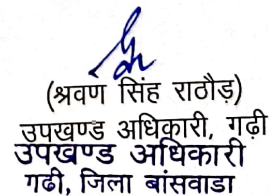 (श्रवण सिंह राठौड़)
उपखण्ड अधिकारी, गढ़ी
उपखण्ड अधिकारी
गढी, जिला बांसवाडा